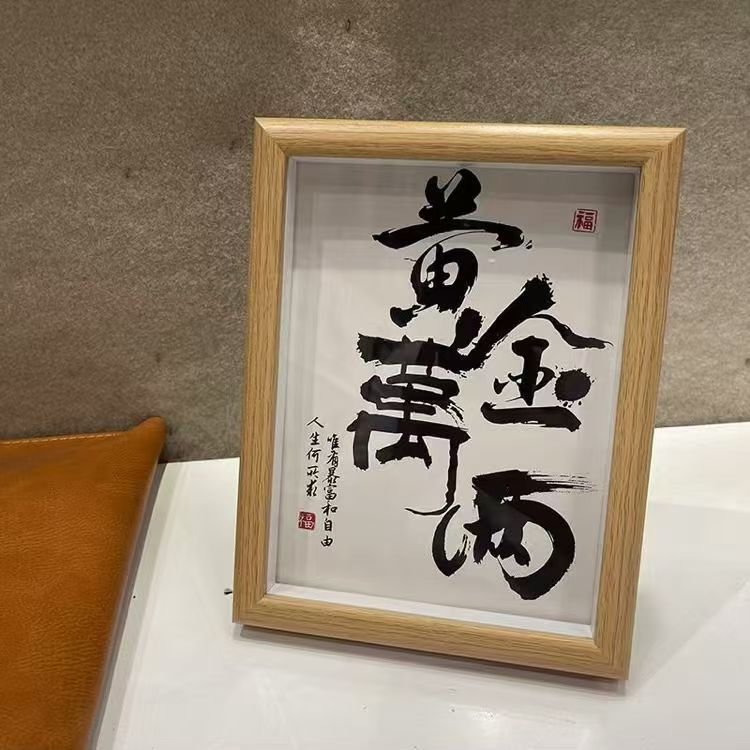 黄金萬两
福
人生何所求
唯有暴富和自由
福